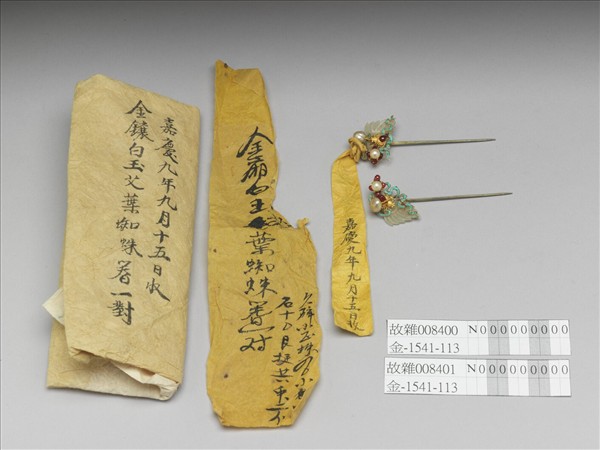 嘉慶九年九月十五日收
金鑲白玉艾葉蜘蛛簪一對
金廂白玉葉蜘蛛簪一对
共重
嘉慶九年九月十五日收
故雜008400 N000000000
金-1541-113
故雜008401 N000000000
金-1541-113